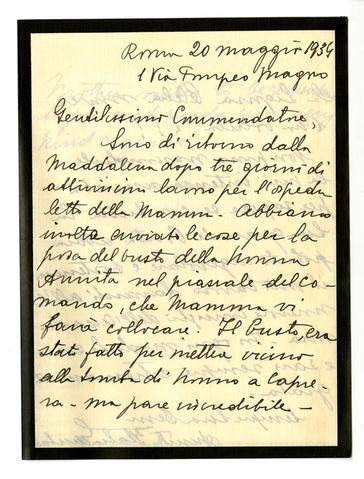 Roma 20 maggio 1934
1 Via Pompeo Magno
Gentilissimo Commendatore,
Sono di ritorno dalla
Maddalena dopo tre giorni di
attivissimo lavoro per l'ospeda
letto della Mamma. Abbiamo
molto avviato le cose per la
posa del busto della nonna
Annita nel piazzale del Co-
mando, che Mamma vi
farà collocare. Il busto, era
stato fatto per metter vicino
alla tomba di Nonno a Capre-
ra - ma pare incredibile -